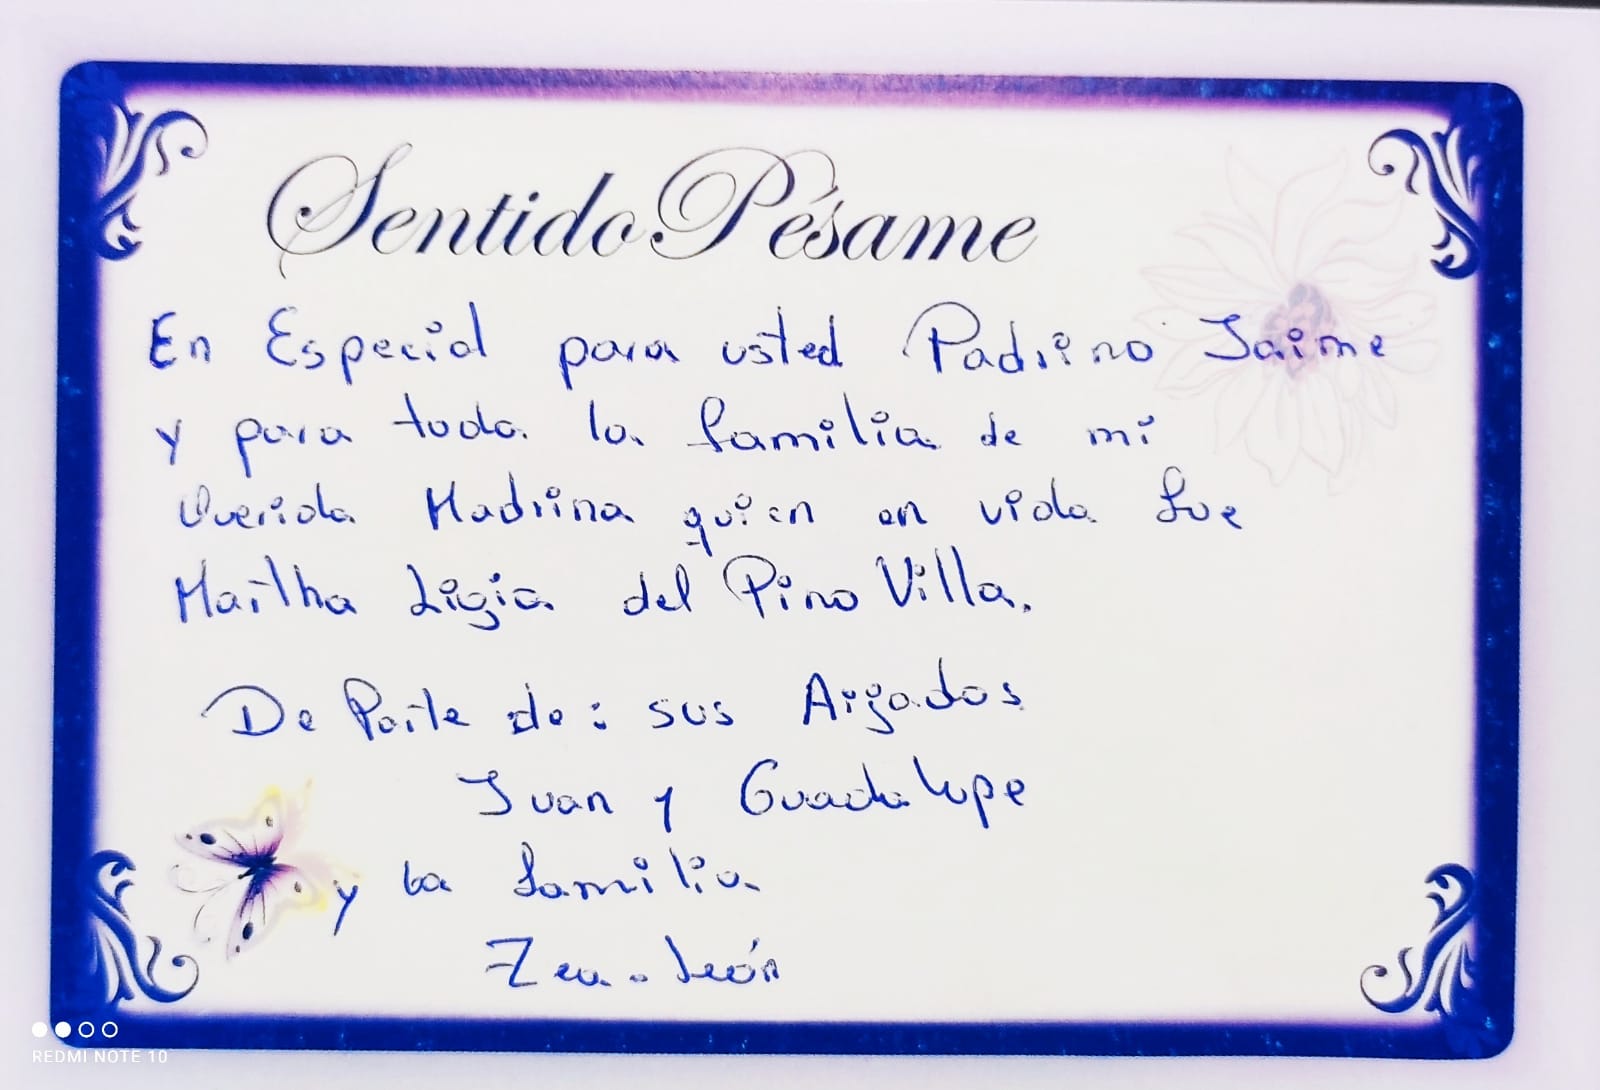 Sentido Pésame
En Especial para usted Padrino Jaime
y para toda la familia de mi
Querida Madrina quien en vida fue
Martha Ligia del Pino Villa.
De Parte de: sus Aijados
Juan y Guadalupe
y la familia
Zea - León
REDMI NOTE 10